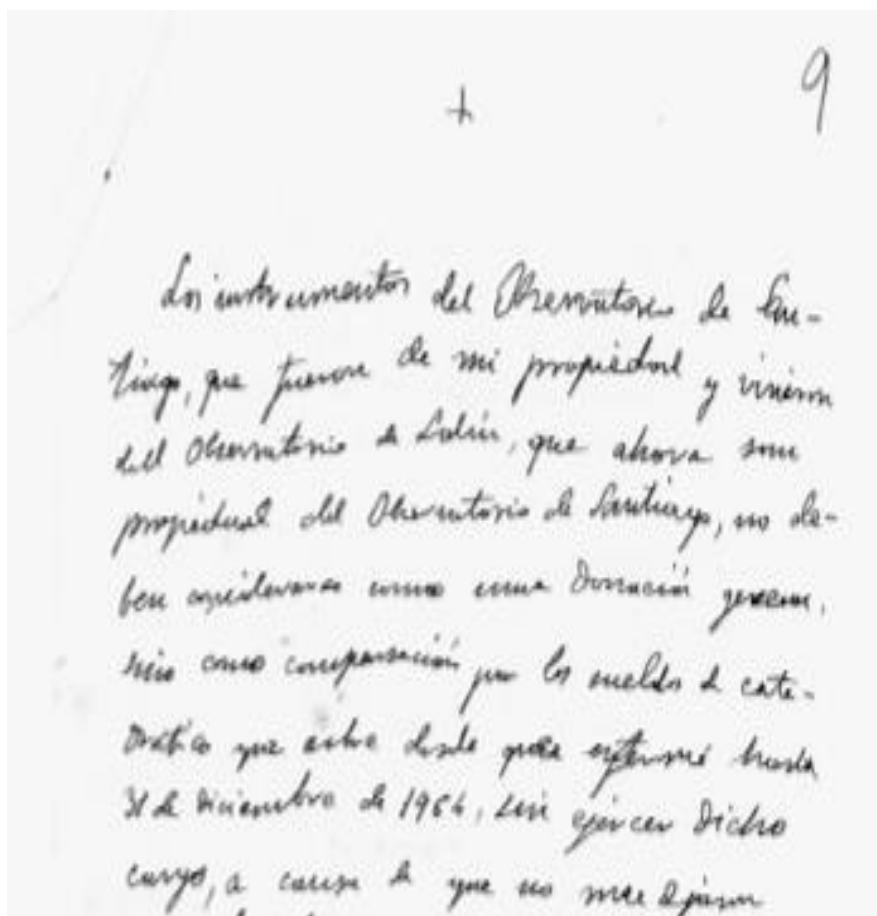 9
+
Los instrumentos del Observatorio de San-
tiago, que fueron de mi propiedad y vinieron
del Observatorio de Lalín, que ahora son
propiedad del Observatorio de Santiago, no de-
ben considerarse como una donación
sino como compensación por los sueldos de cate-
drático que cobré desde que enfermé hasta
31 de diciembre de 1964, sin ejercer dicho
cargo, a causa de que no me dejaron